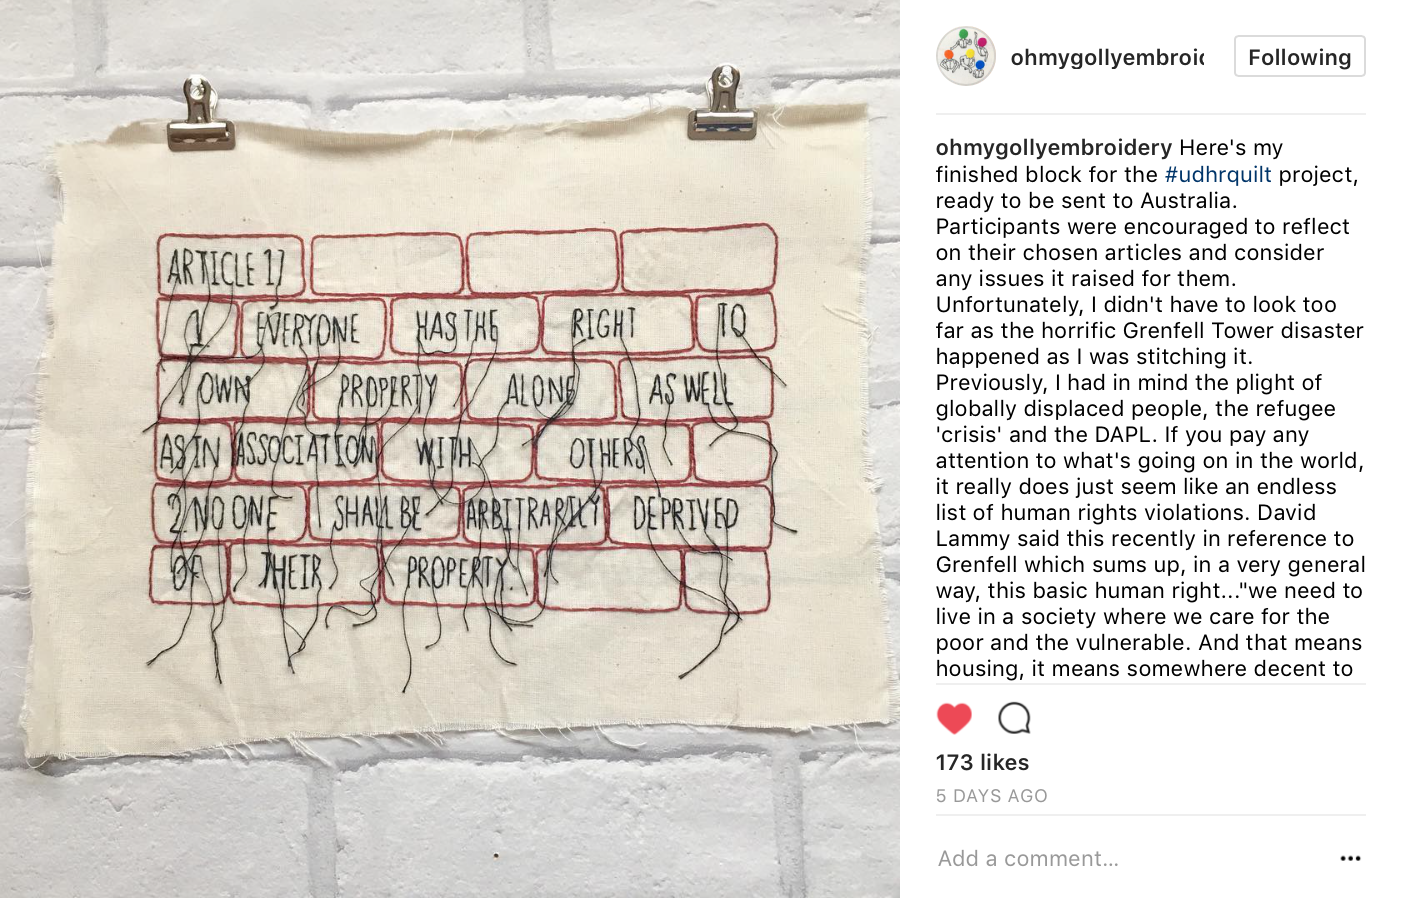 ARTICLE 17
1 EVERYONE HAS THE RIGHT TO
OWN PROPERTY ALONE AS WELL
AS IN ASSOCIATION WITH OTHERS
2 NO ONE SHALL BE ARBITRARILY DEPRIVED
OF THEIR PROPERTY.
ohmygollyembroic
Following
ohmygollyembroidery Here's my
finished block for the #udhrquilt project,
ready to be sent to Australia.
Participants were encouraged to reflect
on their chosen articles and consider
any issues it raised for them.
Unfortunately, I didn't have to look too
far as the horrific Grenfell Tower disaster
happened as I was stitching it.
Previously, I had in mind the plight of
globally displaced people, the refugee
'crisis' and the DAPL. If you pay any
attention to what's going on in the world,
it really does just seem like an endless
list of human rights violations. David
Lammy said this recently in reference to
Grenfell which sums up, in a very general
way, this basic human right..."we need to
live in a society where we care for the
poor and the vulnerable. And that means
housing, it means somewhere decent to
173 likes
5 DAYS AGO
Add a comment...